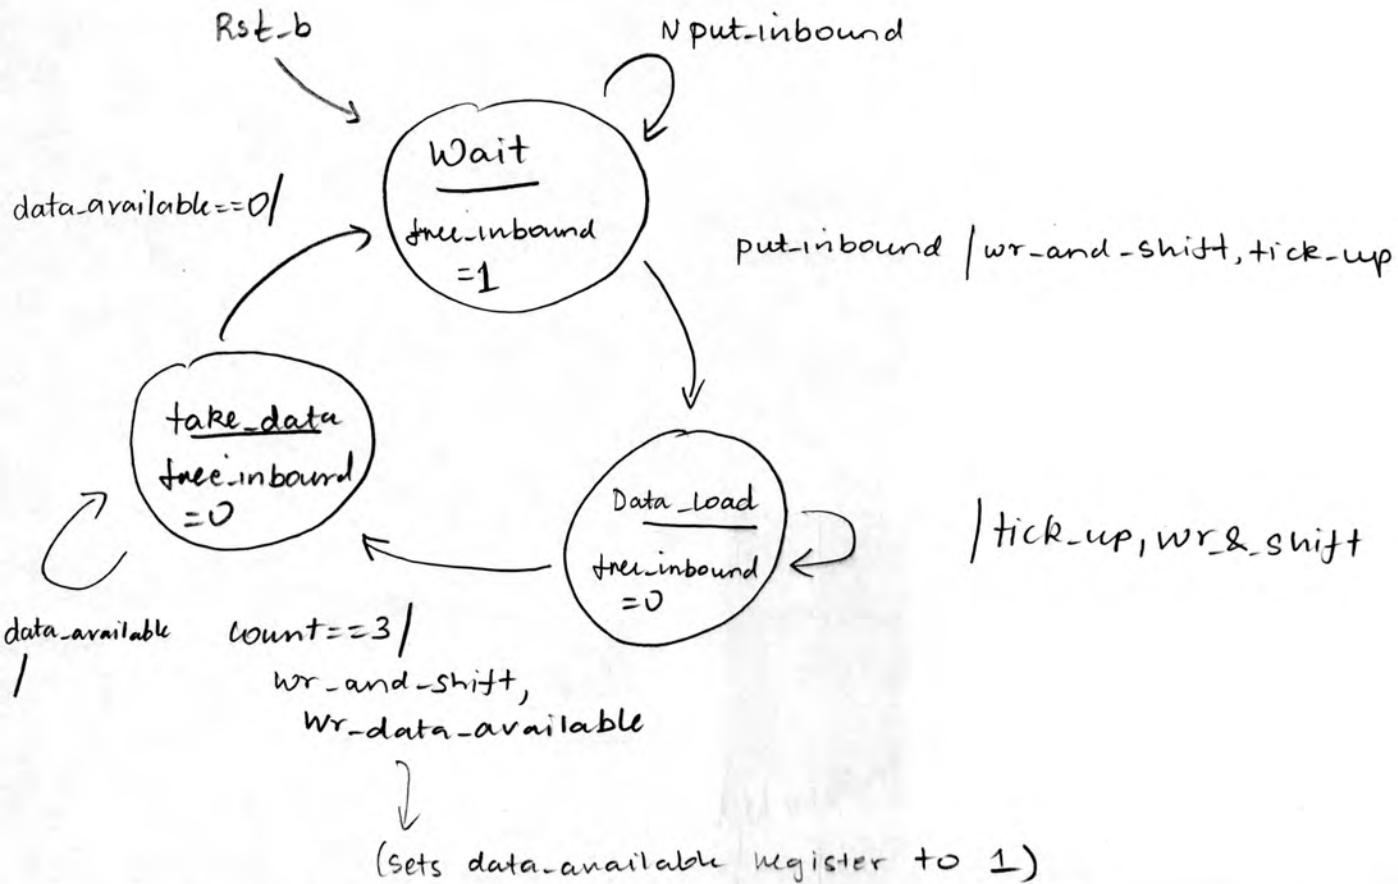 Rst_b
N put_inbound
Wait
free_inbound
=1
data_available==0/
put_inbound / wr_and_shift, tick_up
take_data
free_inbound
=0
Data_Load
free_inbound
=0
/tick_up, wr_&_shift
data_available
/
count==3/
wr_and_shift,
wr_data_available
(sets data_available register to 1)